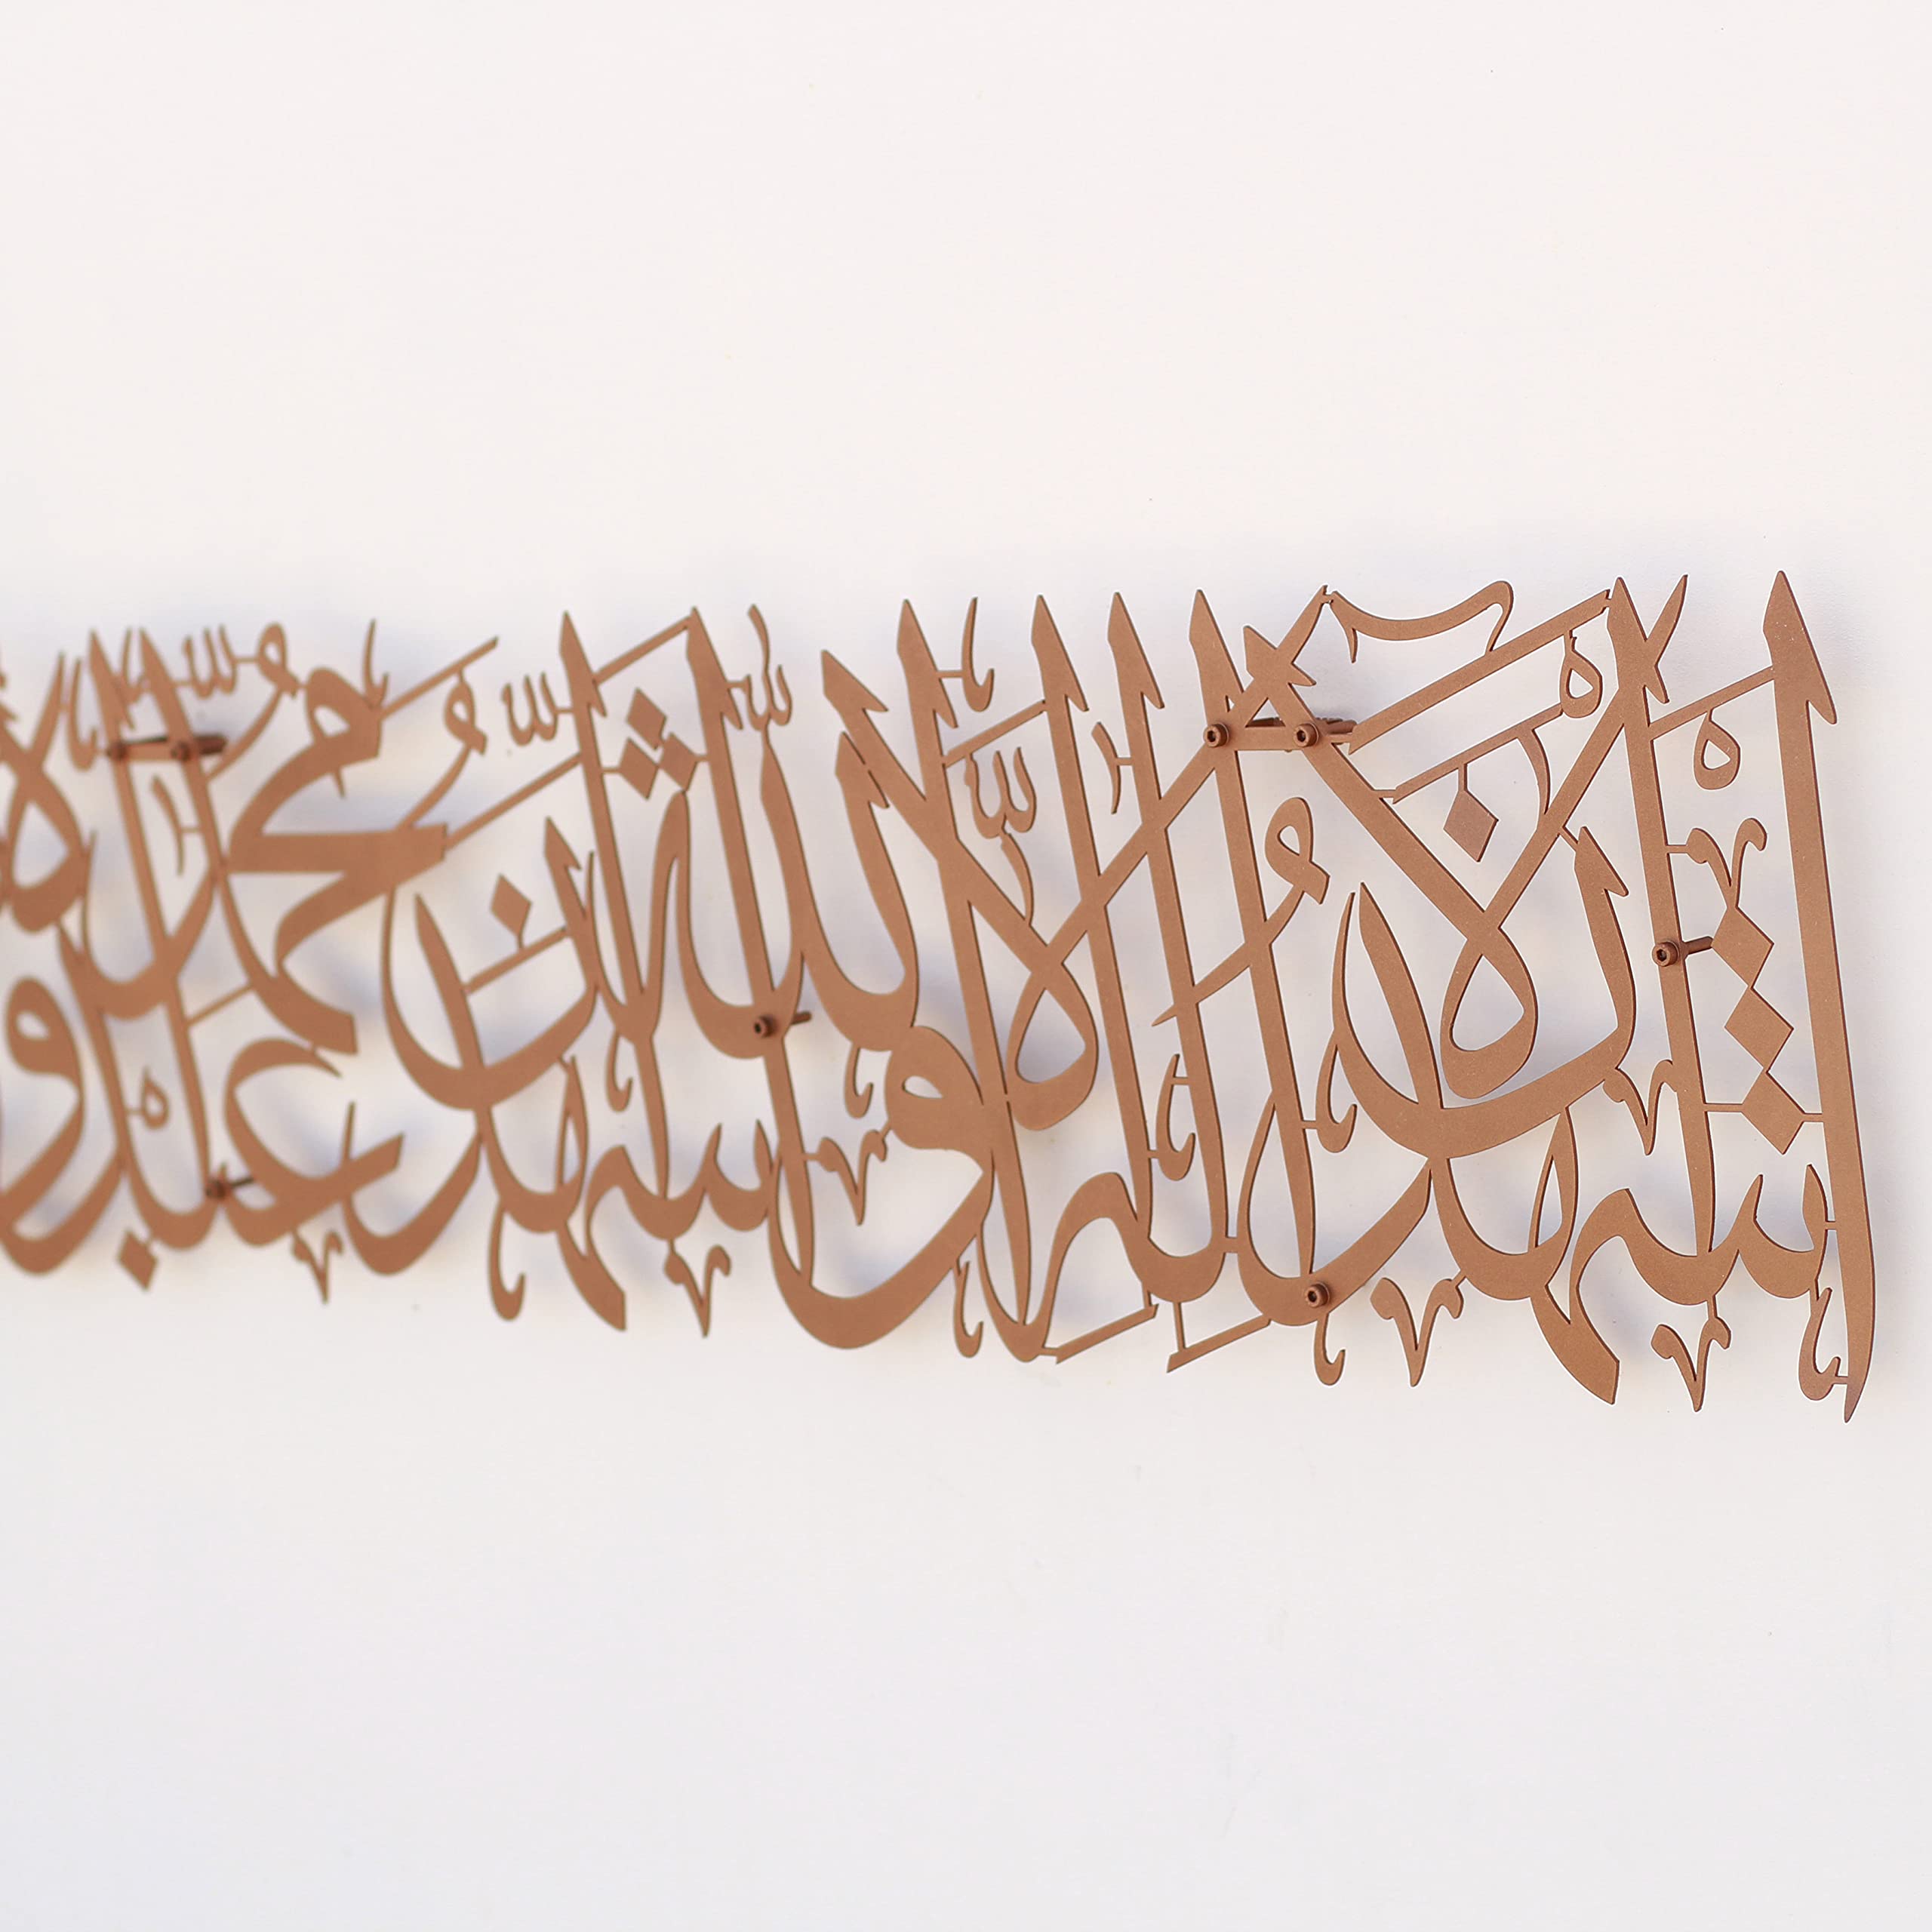 أشهد أن لا إله إلا الله وأشهد أن محمدا عبده و